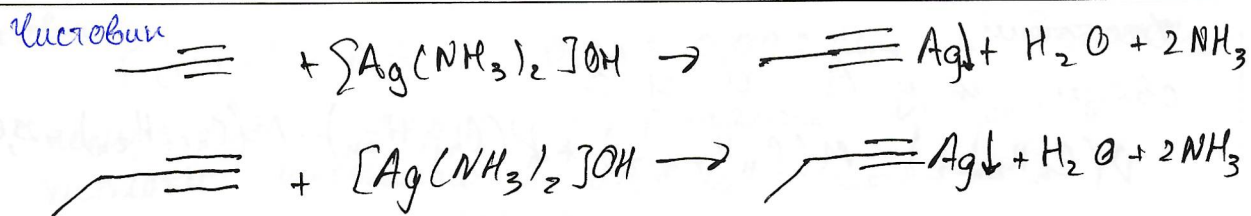 Чистовик
+ [Ag(NH₃)₂]OH → Ag↓ + H₂O + 2NH₃
+ [Ag(NH₃)₂]OH → Ag↓ + H₂O + 2NH₃